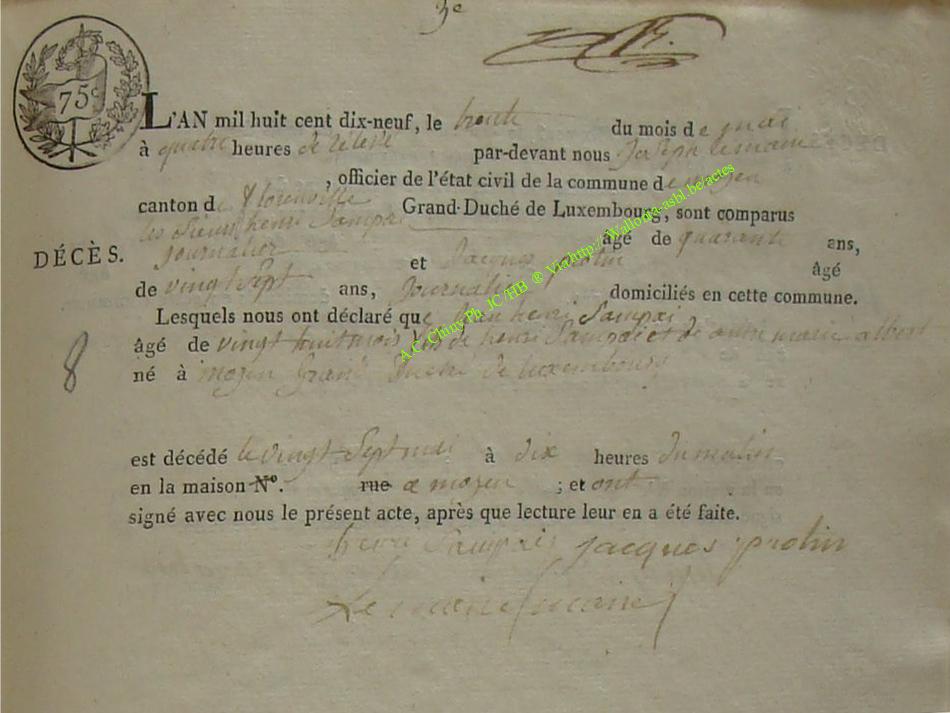 3e
75c
L'AN mil huit cent dix-neuf, le trente du mois de mai
à quatre heures de relevé par-devant nous Joseph lemaire
, officier de l'état civil de la commune de moyen
canton de florenville Grand-Duché de Luxembourg, sont comparus
les sieurs henri Sampai âgé de quarante ans,
DÉCÈS.
journalier et Jacques prolin âgé
de vingt Sept ans, journalier domiciliés en cette commune.
Lesquels nous ont déclaré que jean henri Sampai
8
âgé de vingt huit mois fils de henri Sampai et de anne marie albert
né à moyen grand duché de luxembourg
est décédé le vingt Sept mai à dix heures du matin
en la maison N°. rue a moyen ; et ont
signé avec nous le présent acte, après que lecture leur en a été faite.
henri Sampai jacques prolin
Lemaire maire
A.C.Chiny Ph JC/HB ® Via http://Wallonia-asbl.be/actes